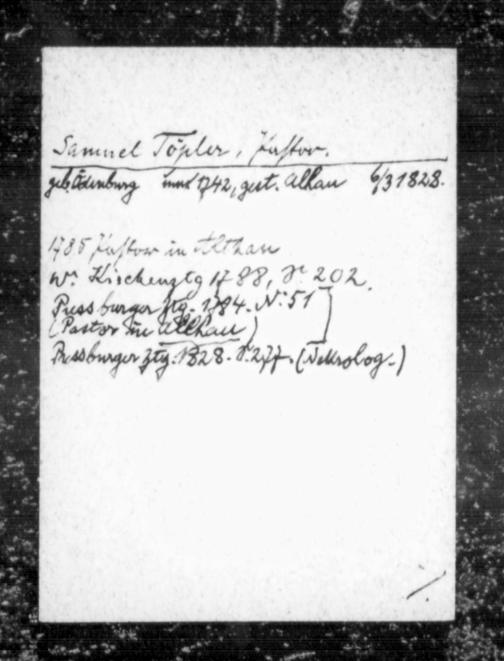 Samuel Töpler, Pastor.
geb. Ödenburg um 1742, gest. Allhau 6/3 1828.
1785 Pastor in Allhau
Wr. Kirchenztg 1788, S. 202.
Pressburger Ztg. 1784. N: 51
(Pastor in Allhau)
Pressburger Ztg. 1828. S. 277. (Nekrolog.)